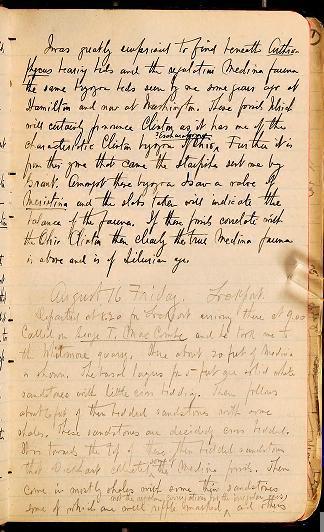 I was greatly surprised to find beneath Arthro-
phycus bearing beds and the Medina fauna
the same bryozoa beds seen by me some years ago at
Hamilton and now at Washington. These fossils Ulrich
will certainly pronounce Clinton as it has many of the
characteristic Clinton bryozoa of Ohio. Further it is
from this zone that came the sent me by
Grant. Amongst these bryozoa I saw a valve of
and the slabs taken will indicate the
balance of the fauna. If these fossils correlate with
the Ohio Clinton then clearly the true Medina fauna
is above and is of Silurian age.
August 16 Friday. Lockport.
Departed at for Lockport arriving there at 9.00
Called on and he took me to
the Whitmore quarry. Here about 30 feet of Medina
is shown. The basal layers for 5 feet are solid white
sandstones with little cross bedding. Then follows
about 6 feet of thin bedded sandstones with some
shales. These sandstones are decidedly cross bedded.
It is towards the top of these thin bedded sandstones
that collected the Medina fossils. Then
come in mostly shales with some thin sandstones
some of which are well ripple marked, and others